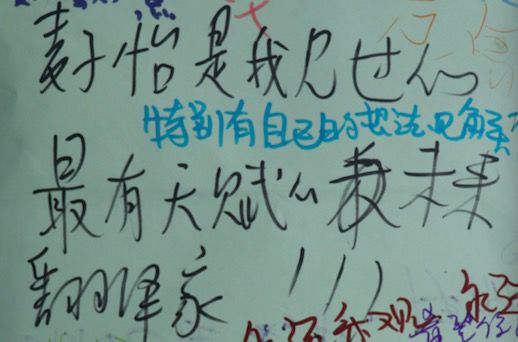 麦子怡是我见过的
特别有自己的想法见解
最有天赋的未来
翻译家 !!!